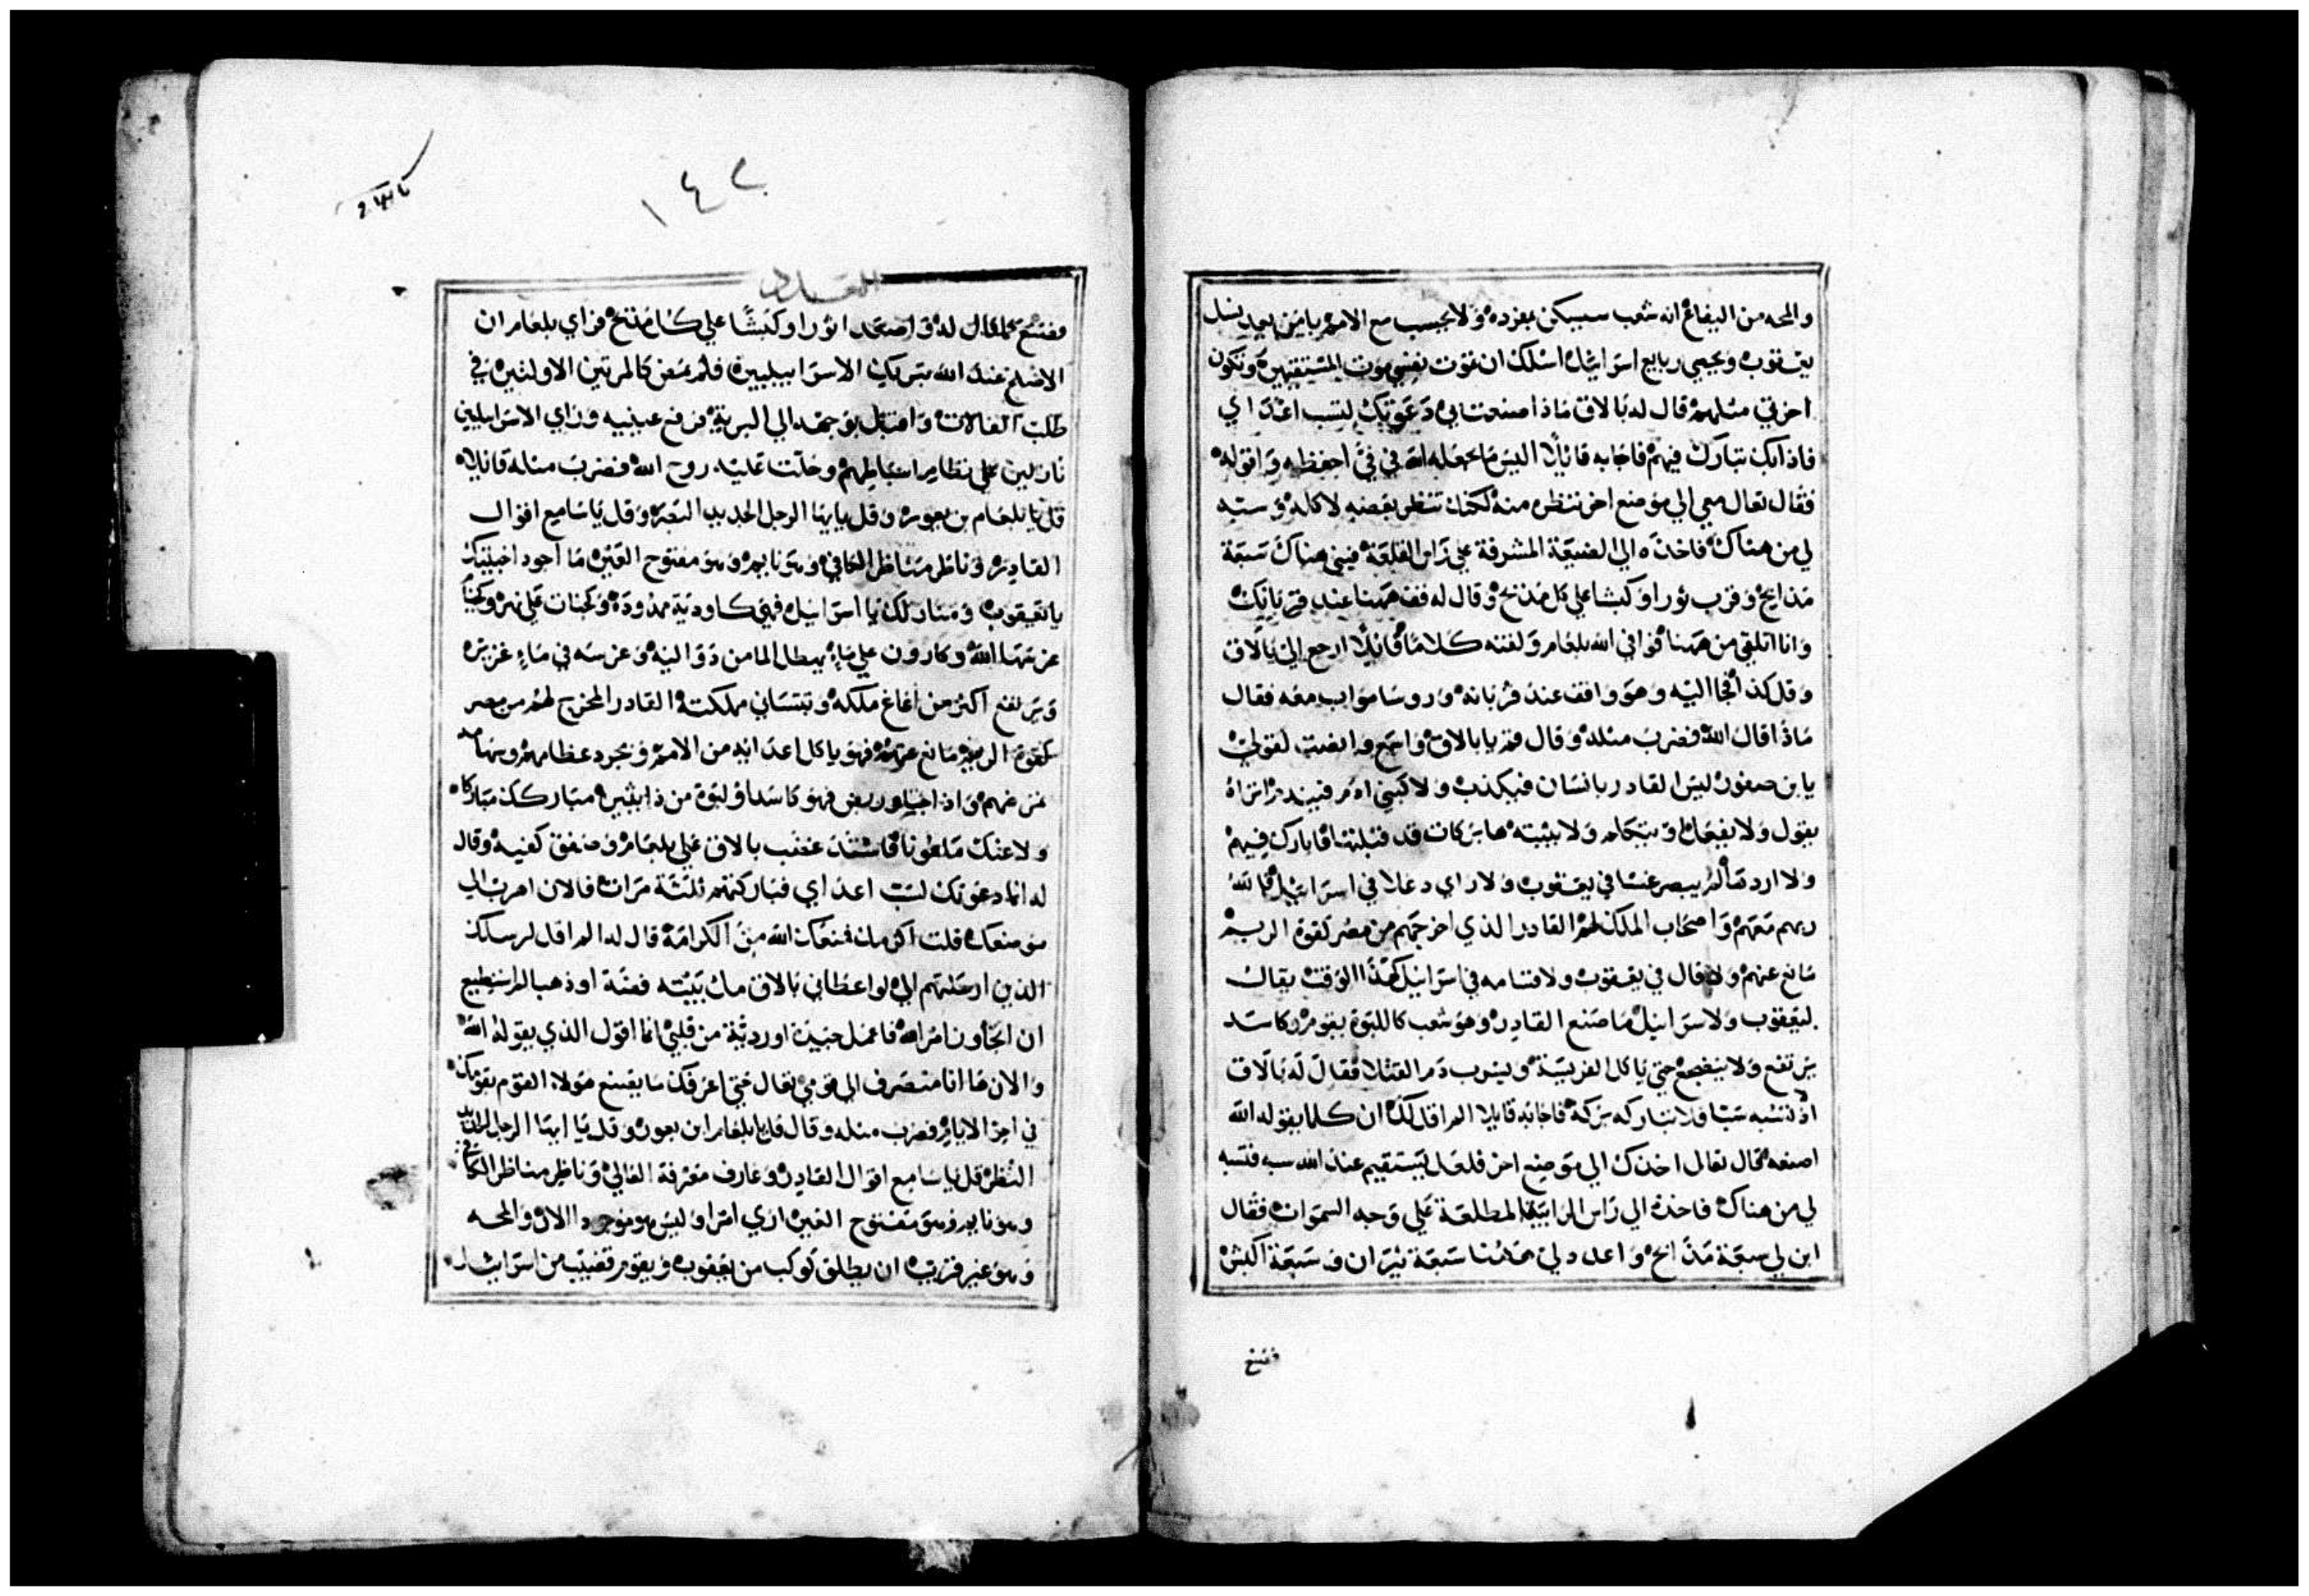 والمحه من اليفاع انه شعب سيسكن بمفرده ولا يحسب مع الامم يا من يعد نسل
يعقوب ويحصي رابع اسرايل اسلك ان تموت نفسي موت المستقيمين وتكون
اخرتي مثلهم قال له بالاق ماذا صنعت بي دعوتك لتسب اعداي
فاذا بك تبارك فيهم فاجابه قايلا اليس ما يجعله الله في فيّ احفظه واقوله
فقال تعال معي الي موضع اخر تنظره منه لكنك تنظر بعضه لا كله وسبه
لي من هناك فاخذه الي الضيعة المشرفة علي راس القلعة فبني هناك سبعة
مذابح وقرب ثورا وكبشا علي كل مذبح وقال له قف ههنا عند قربانك
وانا اتلقي من ههنا فوافي الله بلعام ولقنه كلاما قايلا ارجع الي بالاق
وقل كذا فجا اليه وهو واقف عند قربانه وروسا مواب معه فقال
ماذا قال الله فضرب مثله وقال قم يا بالاق واسمع وانصت لقولي
يا بن صفور ليس القادر بانسان فيكذب ولا كبني ادم فيندم اتراه
يقول ولا يفعل ويتكلم ولا يثبته ها بركات قد قبلتها فابارك فيهم
ولا اردها لم يبصر غشا في يعقوب ولا راي دغلا في اسرايل فالله
ربهم معهم واصحاب الملك لهم القادر الذي اخرجهم من مصر كقوة الريم
مانع عنهم ولا فال في يعقوب ولا قسامه في اسرايل كهذا الوقت يقال
ليعقوب ولاسرايل ما صنع القادر وهو شعب كاللبوة يقوم وكاسد
يرتفع ولا ينضجع حتي ياكل الفريسة ويشرب دم القتلا فقال له بالاق
اذ لم تسبه سبا فلا تباركه بركة فاجابه قايلا الم اقل لك ان كلما يقوله الله
اصنعه فقال تعال اخذك الي موضع اخر فلعل يستقيم عند الله سبه فتسبه
لي من هناك فاخذه الي راس الرابية المطلعة علي وجه السموات فقال
ابن لي سبعة مذابح واعدد لي ههنا سبعة ثيران وسبعة اكبش
فصنع
١٤٢
العدد
فصنع كما قال له واصعد ثورا وكبشا علي كل مذبح فراي بلعام ان
الاصلح عند الله تبريك الاسراييليين فلم يمض كالمرتين الاولتين في
طلب الفالات واقبل بوجهه الي البرية فرفع عينيه وراي الاسراييليين
نازلين علي نظام اسباطهم وحلت عليه روح الله فضرب مثله قايلا
قل يا بلعام بن بعور وقل يا ايها الرجل الحديد البصر وقل يا سامع اقوال
القادر وناظر مناظر الكافي وهو نايم وهو مفتوح العين ما اجود اخبيتك
يا يعقوب ومنازلك يا اسرايل فهي كاودية ممدودة وكجنات علي نهر وكخيما
غرسها الله وكارون علي ماء يهطل الما من دواليه وغرسه في ماء غزيره
ويرتفع اكثر من اغاغ ملكه وتتسان مملكته القادر المخرج لهم من مصر
كقوة الريم مانع عنهم فهو ياكل اعدايه من الامم ويجرد عظامهم وسهامه
تمرضهم واذا اجثي وربض فهو كاسد او لبوة من ذا يثيره مباركك مباركا
ولاعنك ملعونا فاشتد غضب بالاق علي بلعام وصفق كفيه وقال
له انما دعوتك لتسب اعداي فباركتهم ثلثة مرات فالان اهرب الي
موضعك قلت اكرمك فمنعك الله من الكرامة قال له الم اقل لرسلك
الذين ارسلتهم الي لو اعطاني بالاق مل بيته فضة او ذهب لم استطيع
ان اتجاوز امر الله فاعمل جيدة او ردية من قلبي انما اقول الذي يقوله الله
والان ها انا منصرف الي قومي تعال حتي اعرفك ما يصنع هولاء القوم بقومك
في اخر الايام وضرب مثله وقال قل يا بلعام ابن بعور وقل يا ايها الرجل الحديد
النظر قل يا سامع اقوال القادر وعارف معرفة العالي وناظر مناظر الكافي
وهو نايم وهو مفتوح العين اري امرا وليس هو موجود الان والمحه
وهو غير قريب ان ينطلق كوكب من يعقوب ويقوم قضيب من اسرايل